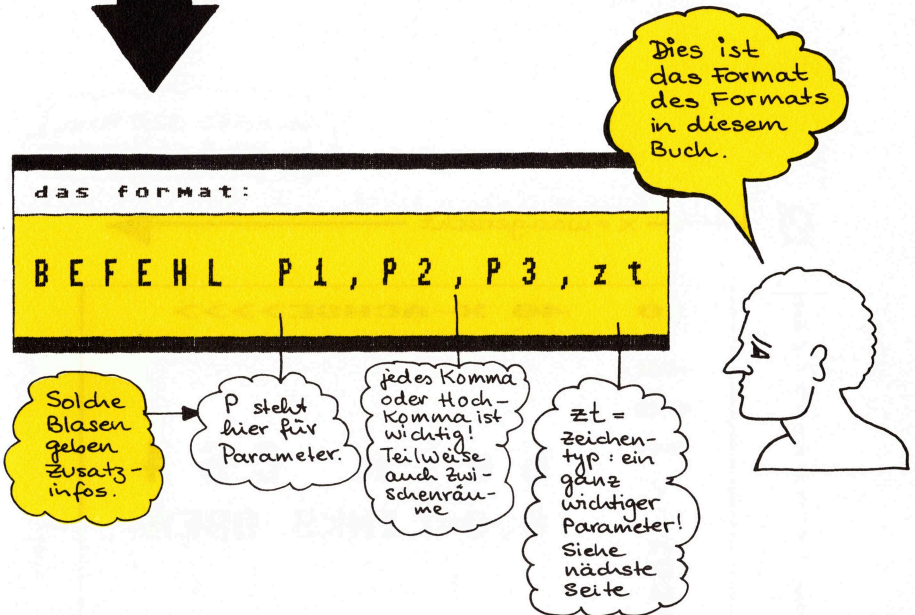 Dies ist
das Format
des Formats
in diesem
Buch.
das format:
BEFEHL P1,P2,P3,zt
Solche
Blasen
geben
Zusatz-
infos.
P steht
hier für
Parameter.
jedes Komma
oder Hoch-
Komma ist
wichtig!
Teilweise
auch Zwi-
schenräu-
me
zt =
Zeichen-
typ : ein
ganz
wichtiger
Parameter!
Siehe
nächste
Seite